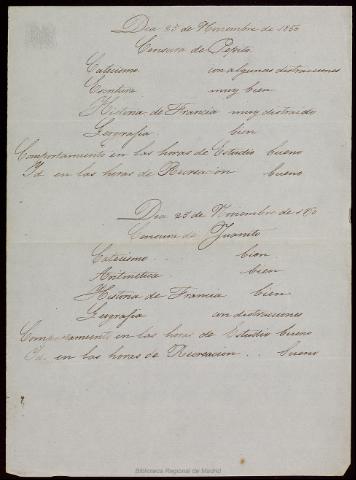 Dia 25 de Noviembre de 1850
Censura de Pepito
Catecismo con algunas distracciones
Escritura muy bien
Historia de Francia muy distraido
Geografia bien
Comportamiento en las horas de Estudio bueno
Id en las horas de Recreacion bueno
Dia 25 de Noviembre de
Censura de Juanito
Catecismo bien
Aritmetica bien
Historia de Francia bien
Geografia con distracciones
Comportamiento en las horas de Estudio bueno
Id en las horas de Recreacion . . bueno
Biblioteca Regional de Madrid